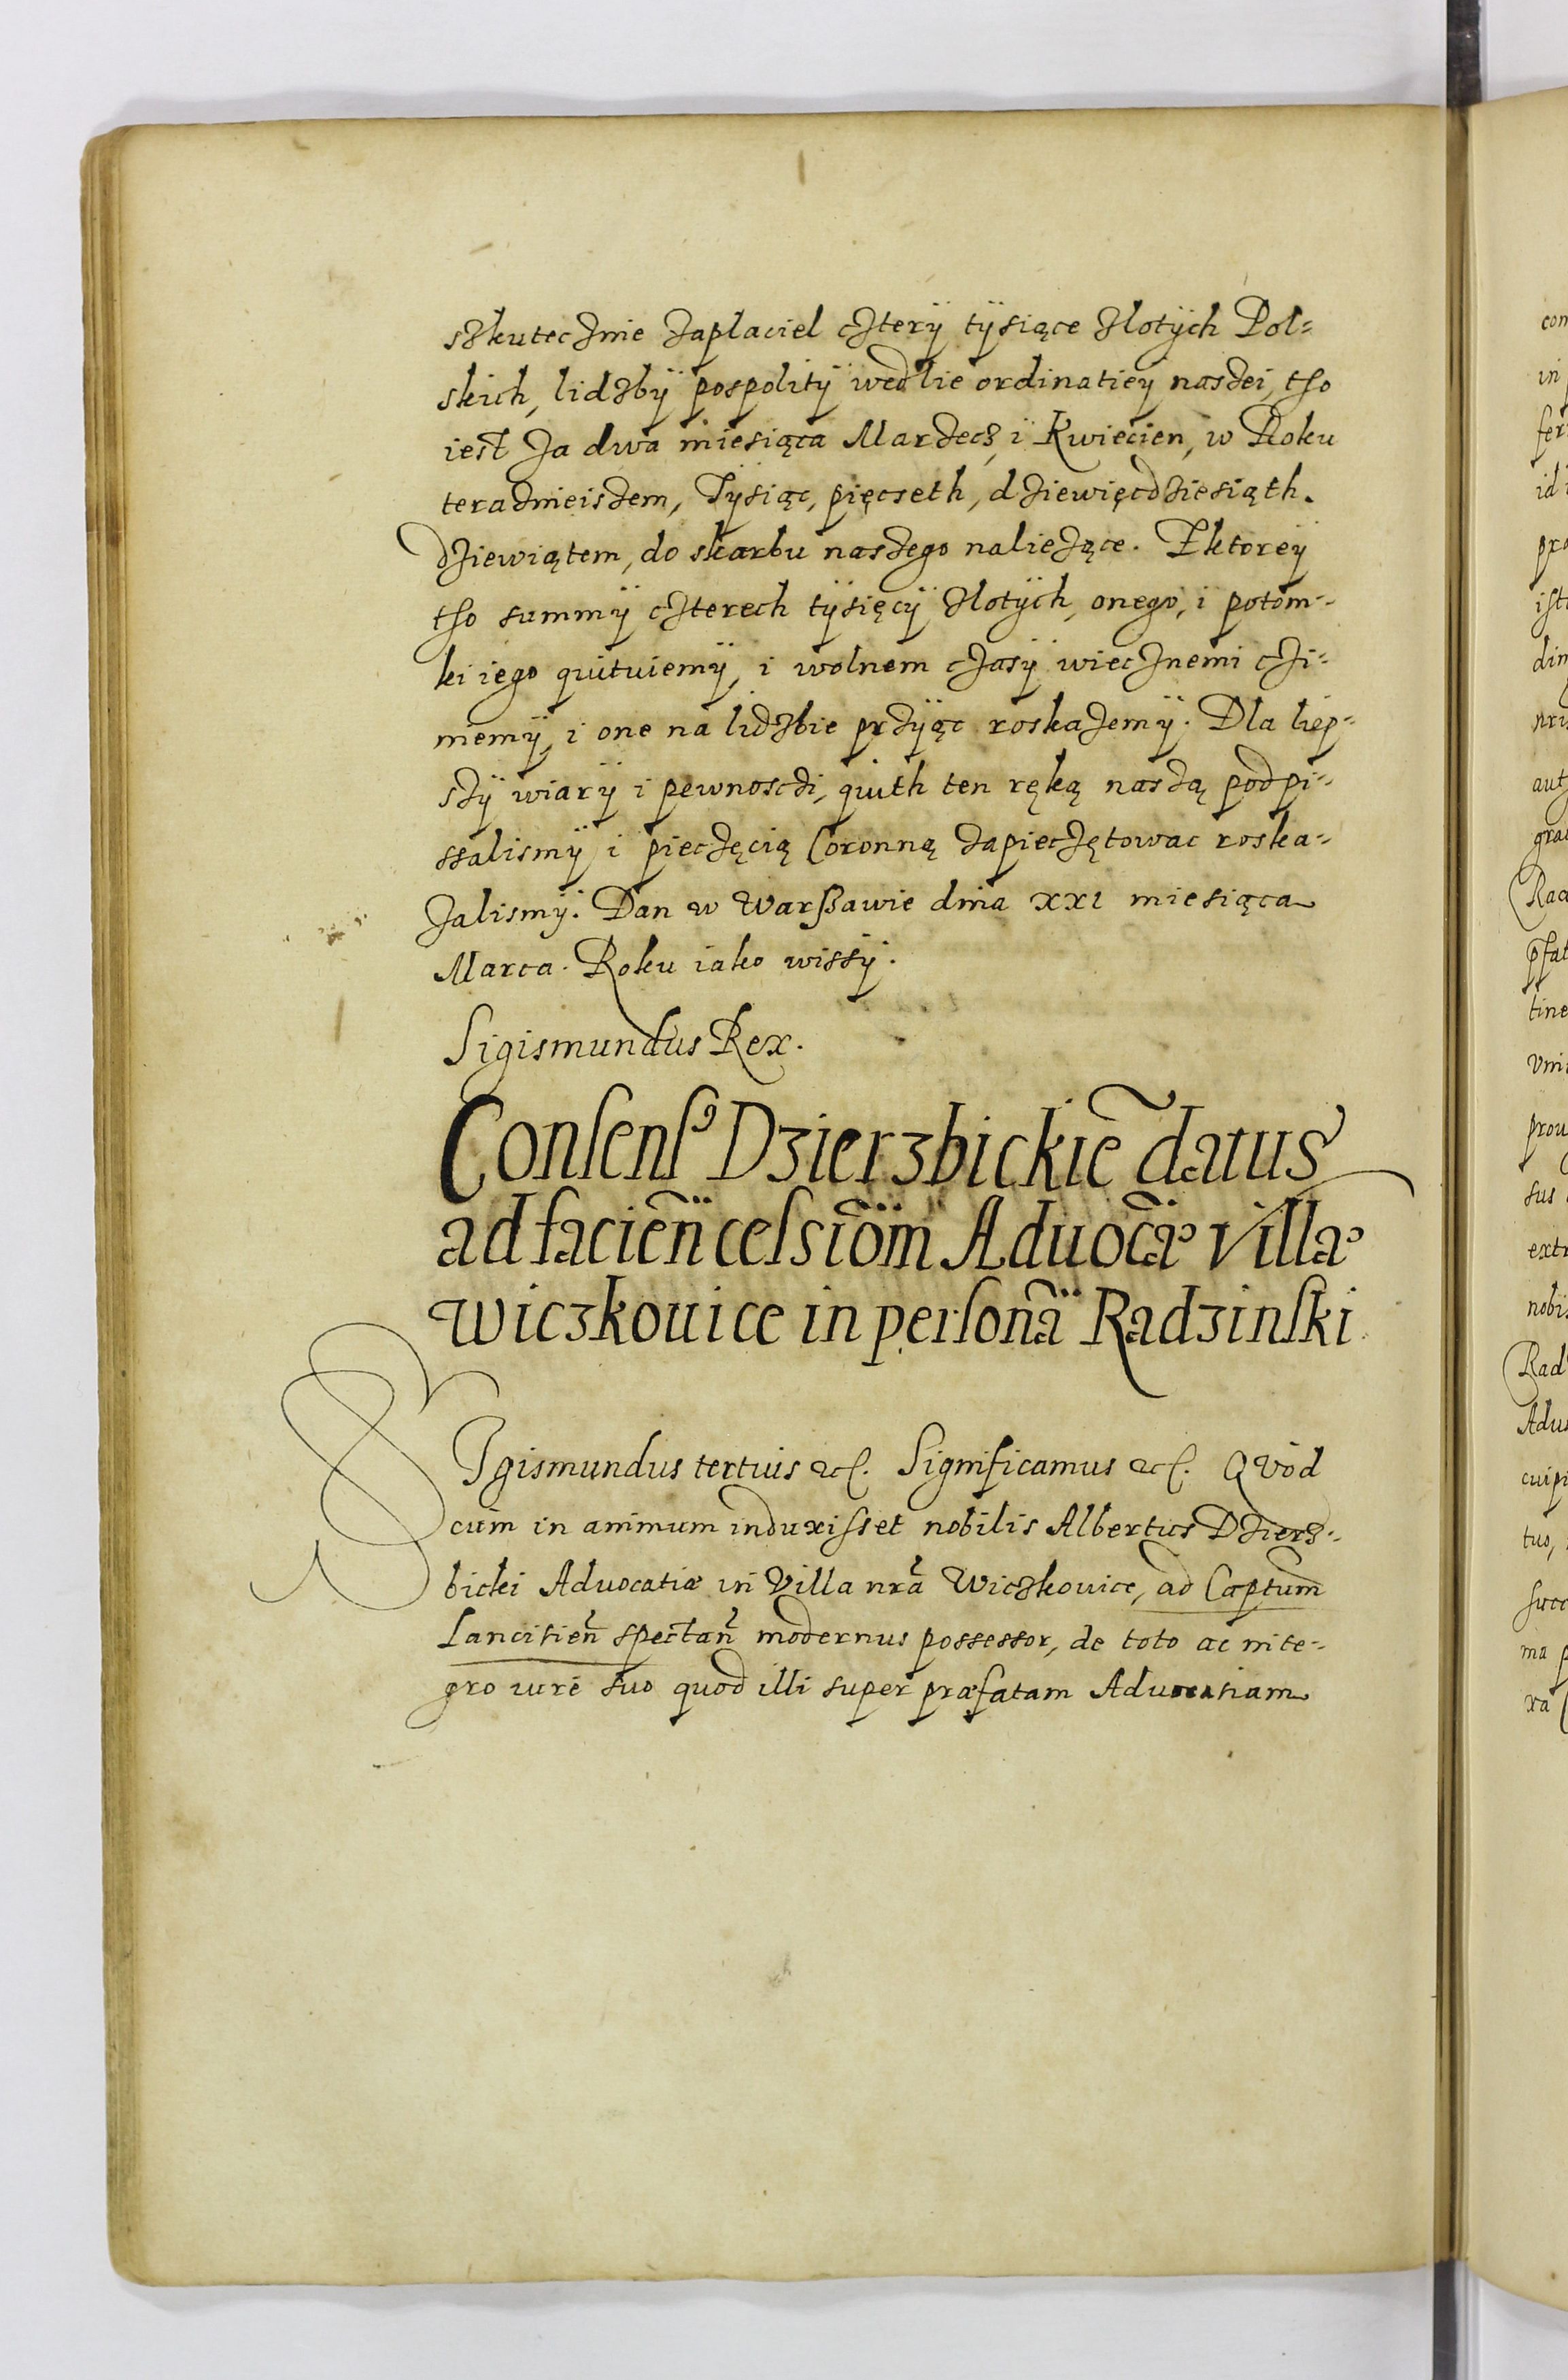 szkutecznie zaplaciel cztery tysiące zlotych Pol-
skich, lidzby pospolity wedlie ordinatiey naszei, tho
iest za dwa miesiąca Marzecz, i Kwiecien, w Roku
teraznieiszem, Tysiąc, pięcseth, dziewięcdziesiąth.
dziewiątem, do skarbu naszego nalieżące. Zktorey
tho summy czterech tysięcy zlotych, onego, i potom-
ki iego quituiemy, i wolnem czasy wiecznemi czi-
niemy, i one na lidzbie przyąc roskazemy. Dla liep-
szy wiary i pewnosczi, quith ten ręką naszą podpi-
ssalismy i pieczęcią Coronną zapieczętowac roska-
zalismy. Dan w Warßawie dnia xxi miesiąca
Marca. Roku iako wissy.
Sigismundus Rex.
Consensꝰ Dzierzbickiē datus
ad facien̄ cessiōm Aduocāe villae
Wiczkouice in personā Radzinski
SIgismundus tertius etc. Significamus etc. Quòd
cùm in animum induxisset nobilis Albertus Dzierz-
bicki Aduocatiæ in Villa nrā Wiczkouice, ad Captum
Lancitien̄ spectan̄ modernus possessor, de toto ac inte-
gro iure suo quod illi super præfatam Aduocatiam
con
in
fer
id i
pro
ist
din
nris
aut
gra
Rad
pfat
tine
Vni
prou
sus
extr
nobi
Rad
Adu
cuipi
tuo,
succ
ma p
xa